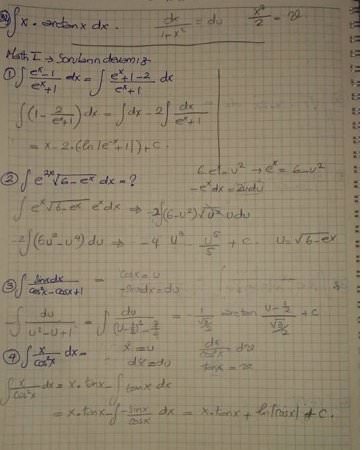 ∫x. arctanx dx. dx/(1+x²) = du x²/2 = v
Math I → Soruların devamı:
① ∫(eˣ-1)/(eˣ+1) dx = ∫(eˣ+1-2)/(eˣ+1) dx
∫(1 - 2/(eˣ+1)) dx = ∫dx - 2∫dx/(eˣ+1)
= x - 2.(ln|e⁻ˣ+1|)+C.
6-eˣ=u² → eˣ = 6-u²
-eˣdx = 2udu
② ∫e²ˣ√(6-eˣ) dx = ?
∫eˣ√(6-eˣ) eˣdx ⇒ -2∫(6-u²)√u² udu
-2∫(6u²-u⁴)du ⇒ -4 u³ u⁵/5 + c. u=√(6-eˣ)
③ ∫sinxdx/(cos²x-cosx+1) = cosx=u
-sinxdx=du
-∫du/(u²-u+1) = ∫du/((u-1/2)²-3/4) = -1/(√3/2) arctan (u-1/2)/(√3/2) + C
④ ∫x/cos²x dx = x=u dx/cos²x dv
dx=du tanx=v
∫x/cos²x dx = x.tanx - ∫tanx dx
= x.tanx - ∫-sinx/cosx dx = x.tanx + ln|cosx| + C.